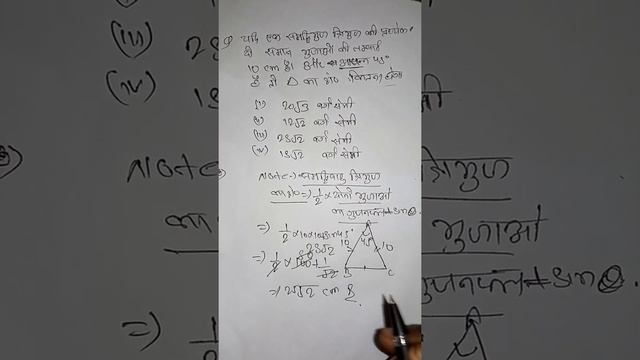 Q यदि एक समद्विभुज त्रिभुज की प्रत्येक
दो समान भुजाओं की लम्बाई
10 cm है। और 45°
है तो △ का क्षे० कितना होगा
(i) 20√3 वर्ग सेमी
(ii) 12√2 वर्ग सेमी
(iii) 25√2 वर्ग सेमी
(iv) 15√2 वर्ग सेमी
Note -) समद्विबाहु त्रिभुज
का क्षे० => 1/2 × दोनों भुजाओं
का गुणनफल + sin θ
=> 1/2 × 10 × 10 × sin 45°
=> 1/2 × 100 + 1/√2
25√2
=> 25√2 cm
A
10 45° 10
B C